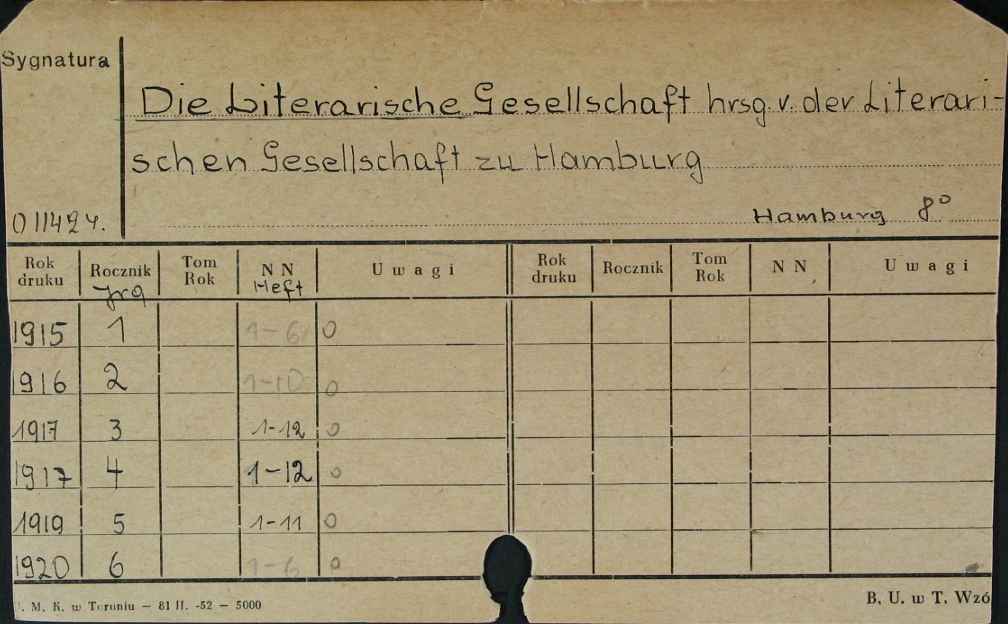 Sygnatura
Die Literarische Gesellschaft hrsg. v. der Literari-
schen Gesellschaft zu Hamburg
011424. Hamburg 8°
Rok druku Rocznik Tom Rok NN Uwagi Rok druku Rocznik Tom Rok NN Uwagi
Jrg Heft
1915 1 1-6 0
1916 2 1-10 0
1917 3 1-12 0
1917 4 1-12 0
1919 5 1-11 0
1920 6 1-6 0
. M. K. w Toruniu — 81 II. -52 — 5000 B. U. w T. Wzó